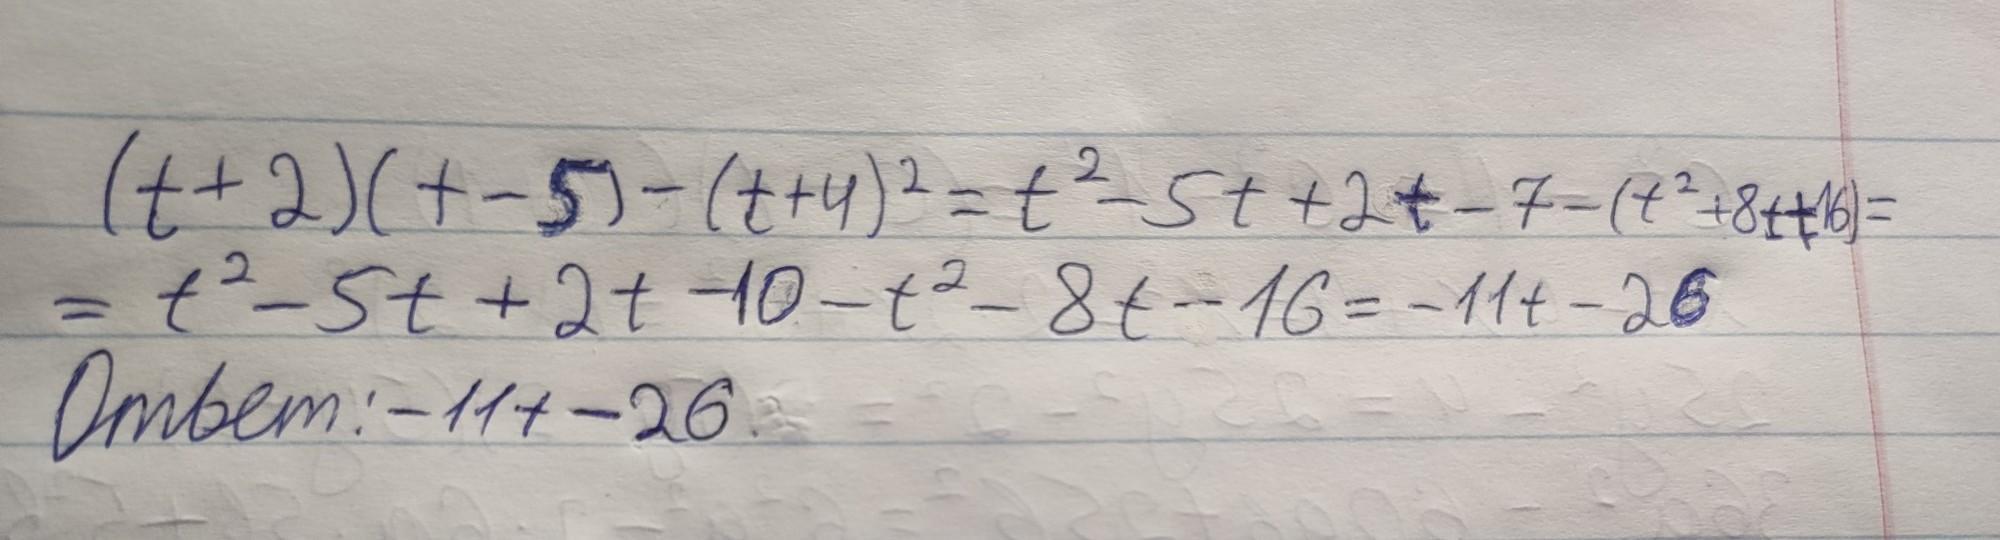 (t+2)(t-5)-(t+4)²=t²-5t+2t-7-(t²+8t+16)=
=t²-5t+2t-10-t²-8t-16=-11t-26
Ответ: -11t-26.